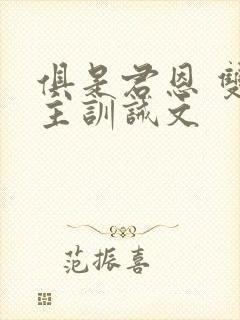 俱是君恩 雙
主訓誡文
范振喜